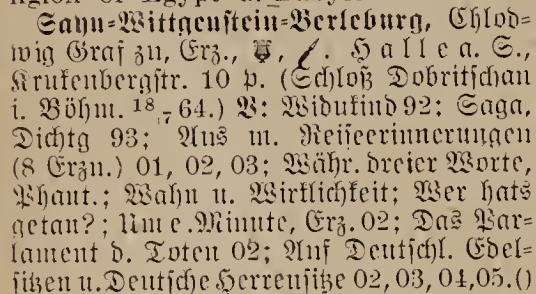 ligion of Egypt
Sayn=Wittgenstein=Berleburg, Chlod=
wig Graf zu, Erz., Halle a. S.,
Krukenbergstr. 10 p. (Schloß Dobritschan
i. Böhm. 18/7 64.) V: Widukind 92; Saga,
Dichtg 93; Aus m. Reiseerinnerungen
(8 Erzn.) 01, 02, 03; Währ. dreier Worte,
Phant.; Wahn u. Wirklichkeit; Wer hats
getan?; Um e. Minute, Erz. 02; Das Par=
lament d. Toten 02; Auf Deutschl. Edel=
sitzen u. Deutsche Herrensitze 02, 03, 04, 05. ()